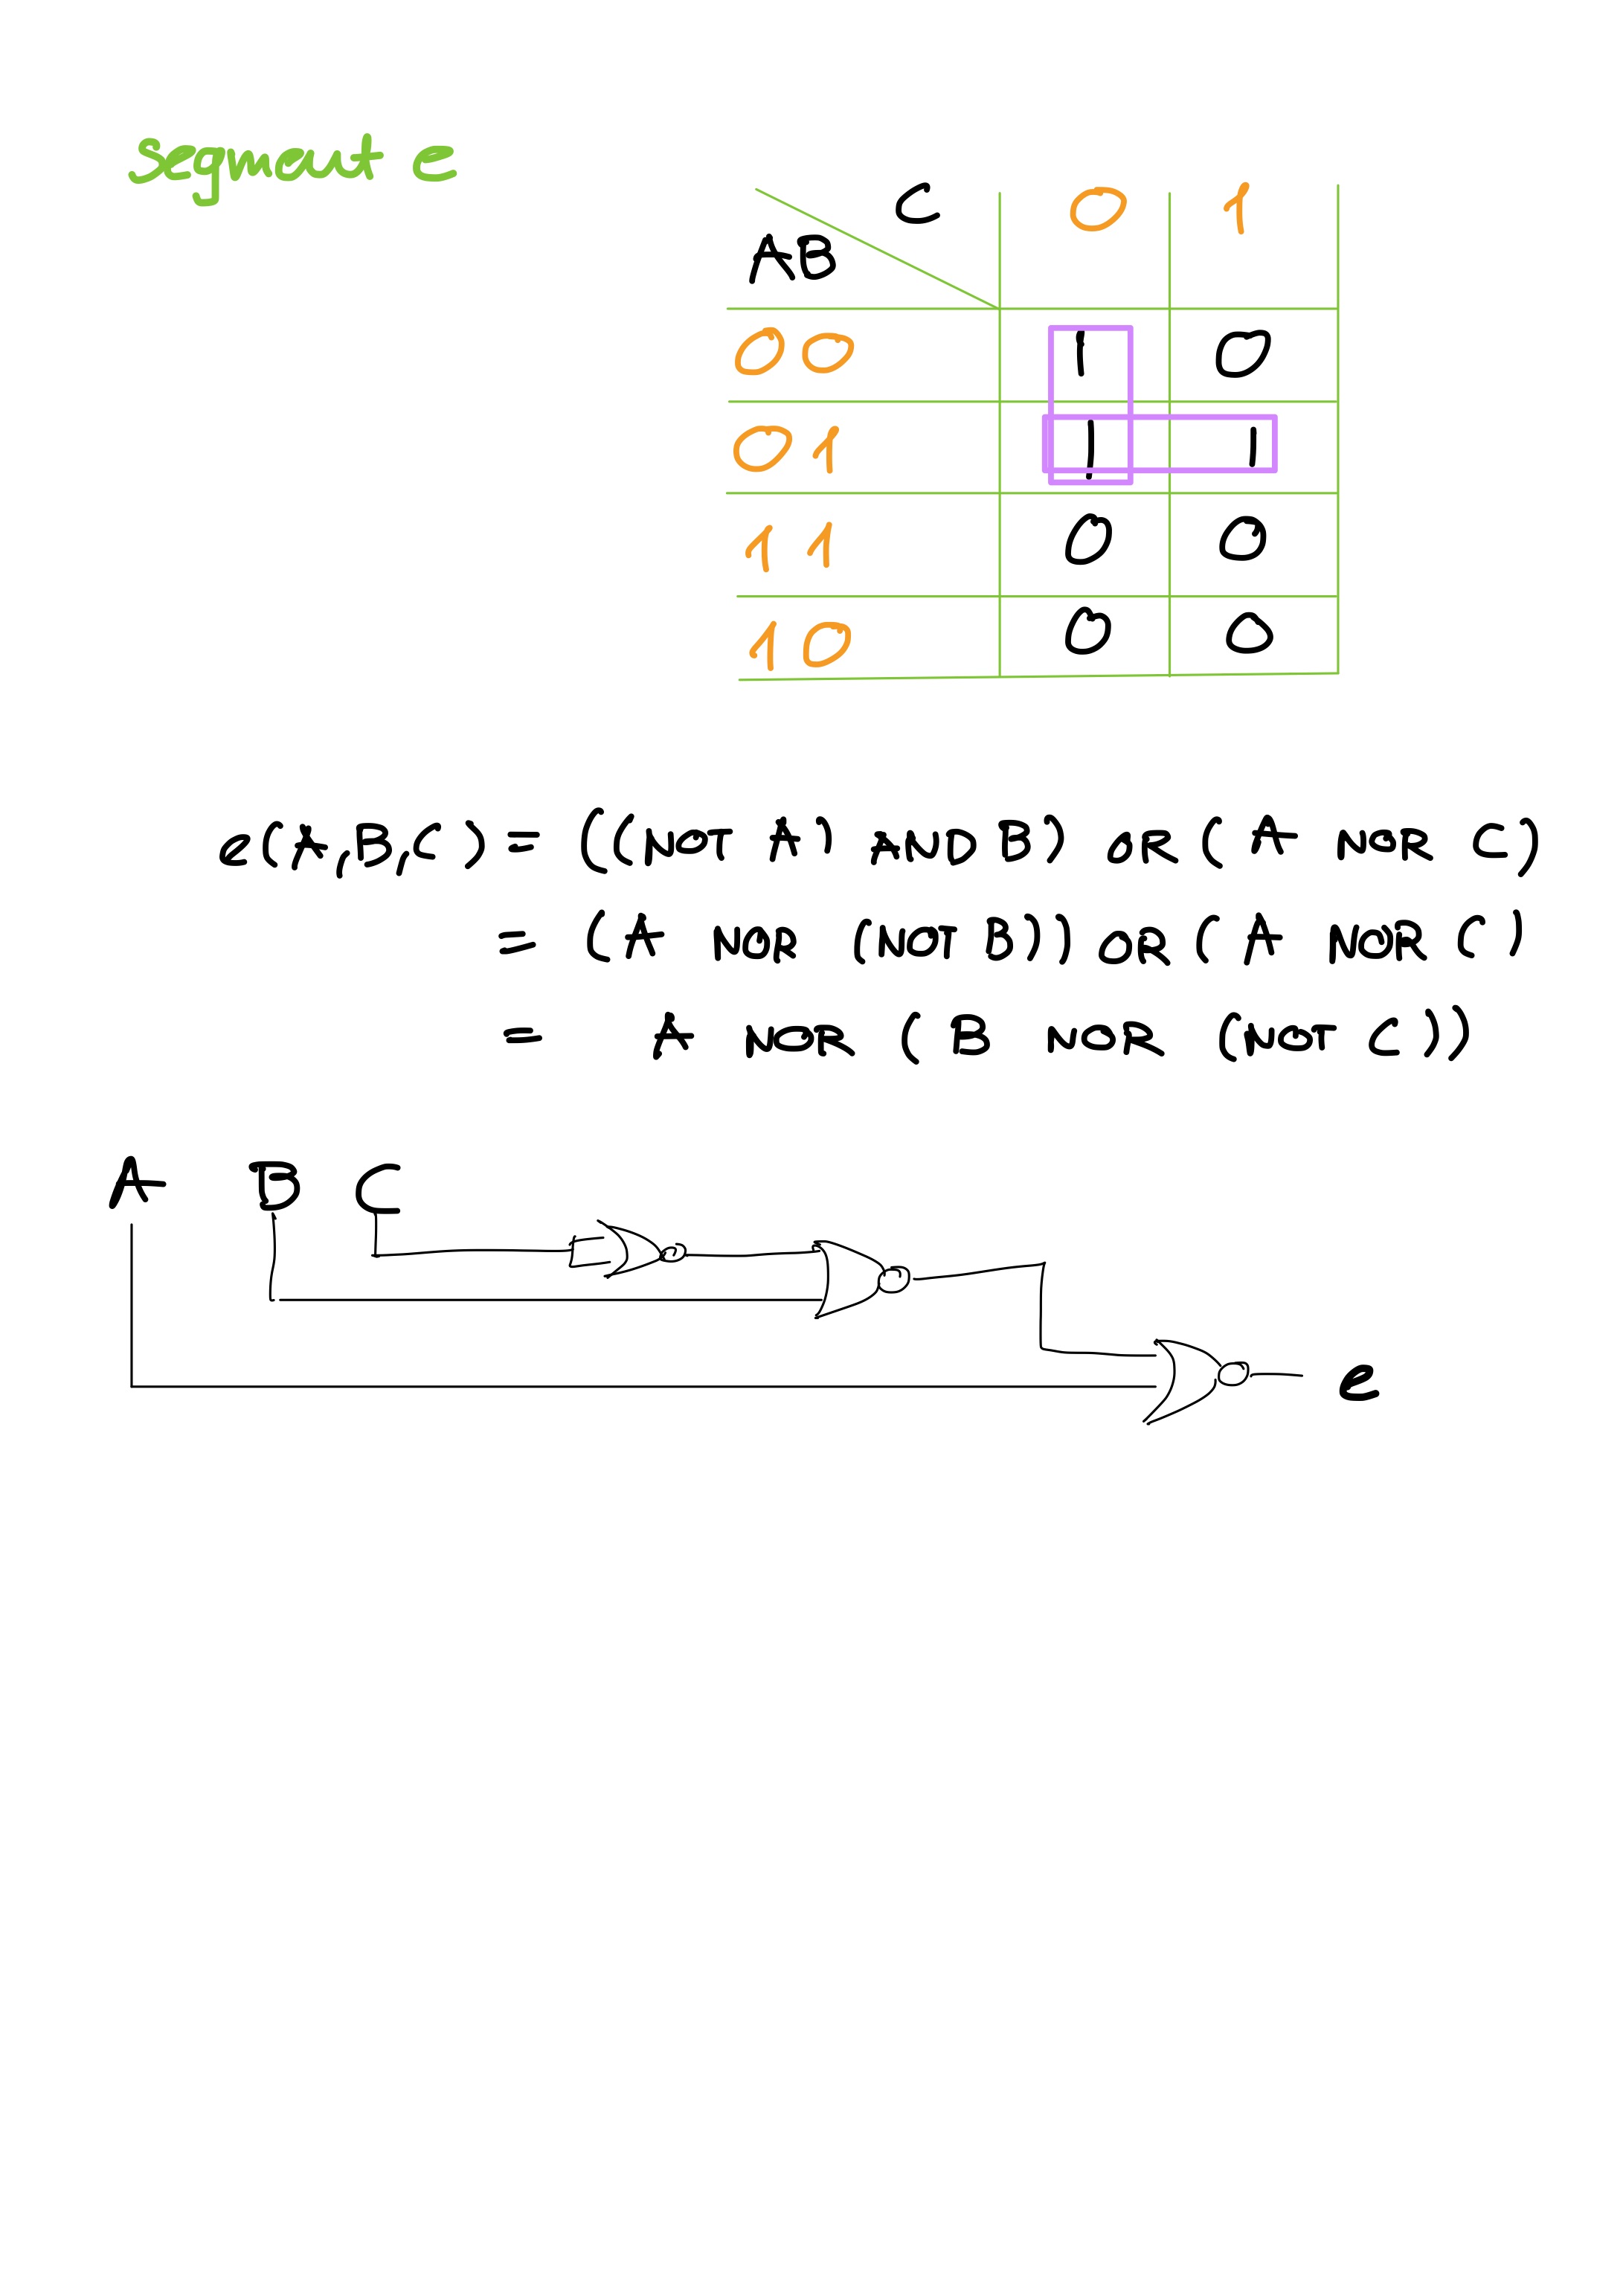 Segment e
C 0 1
AB
00 1 0
01 1 1
11 0 0
10 0 0
e(A,B,C) = ((NOT A) AND B) OR (A NOR C)
= (A NOR (NOT B)) OR (A NOR C)
= A NOR (B NOR (NOT C))
A B C
e